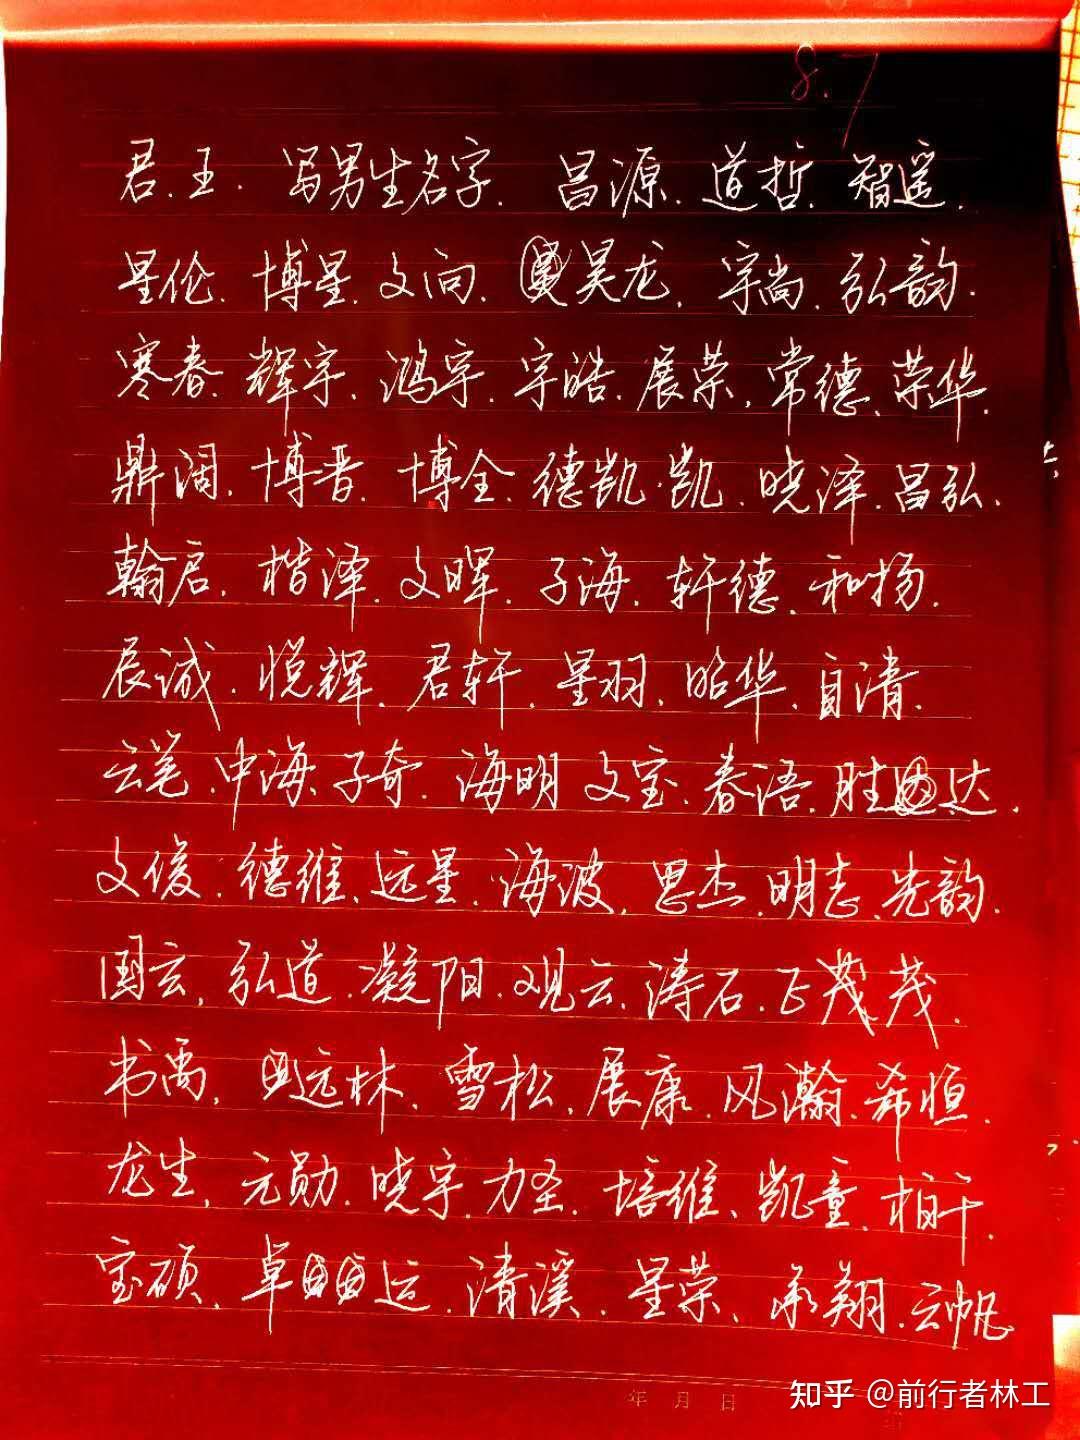 8.7
君.王.写男生名字.昌源.道哲.智遥.
星伦.博星.文向.昊龙.宇尚.弘韵.
寒春.辉宇.鸿宇.宇皓.展荣.常德.荣华.
鼎阔.博晋.博全.德凯.凯.晓泽.昌弘.
翰启.楷泽.文晖.子海.轩德.和扬.
辰诚.悦辉.君轩.星羽.昭华.自清.
云笔.中海.子奇.海明.文宝.春语.胜达.
文俊.德维.远星.海波.思杰.明志.先韵.
国云.弘道.凝阳.观云.涛石.正茂.茂.
书禹.远林.雪松.展康.风瀚.希恒.
龙生.元勋.晓宇.力圣.培维.凯童.柏千.
宝硕.卓运.清溪.星荣.承翔.云帆
年 月 日
知乎 @前行者林工